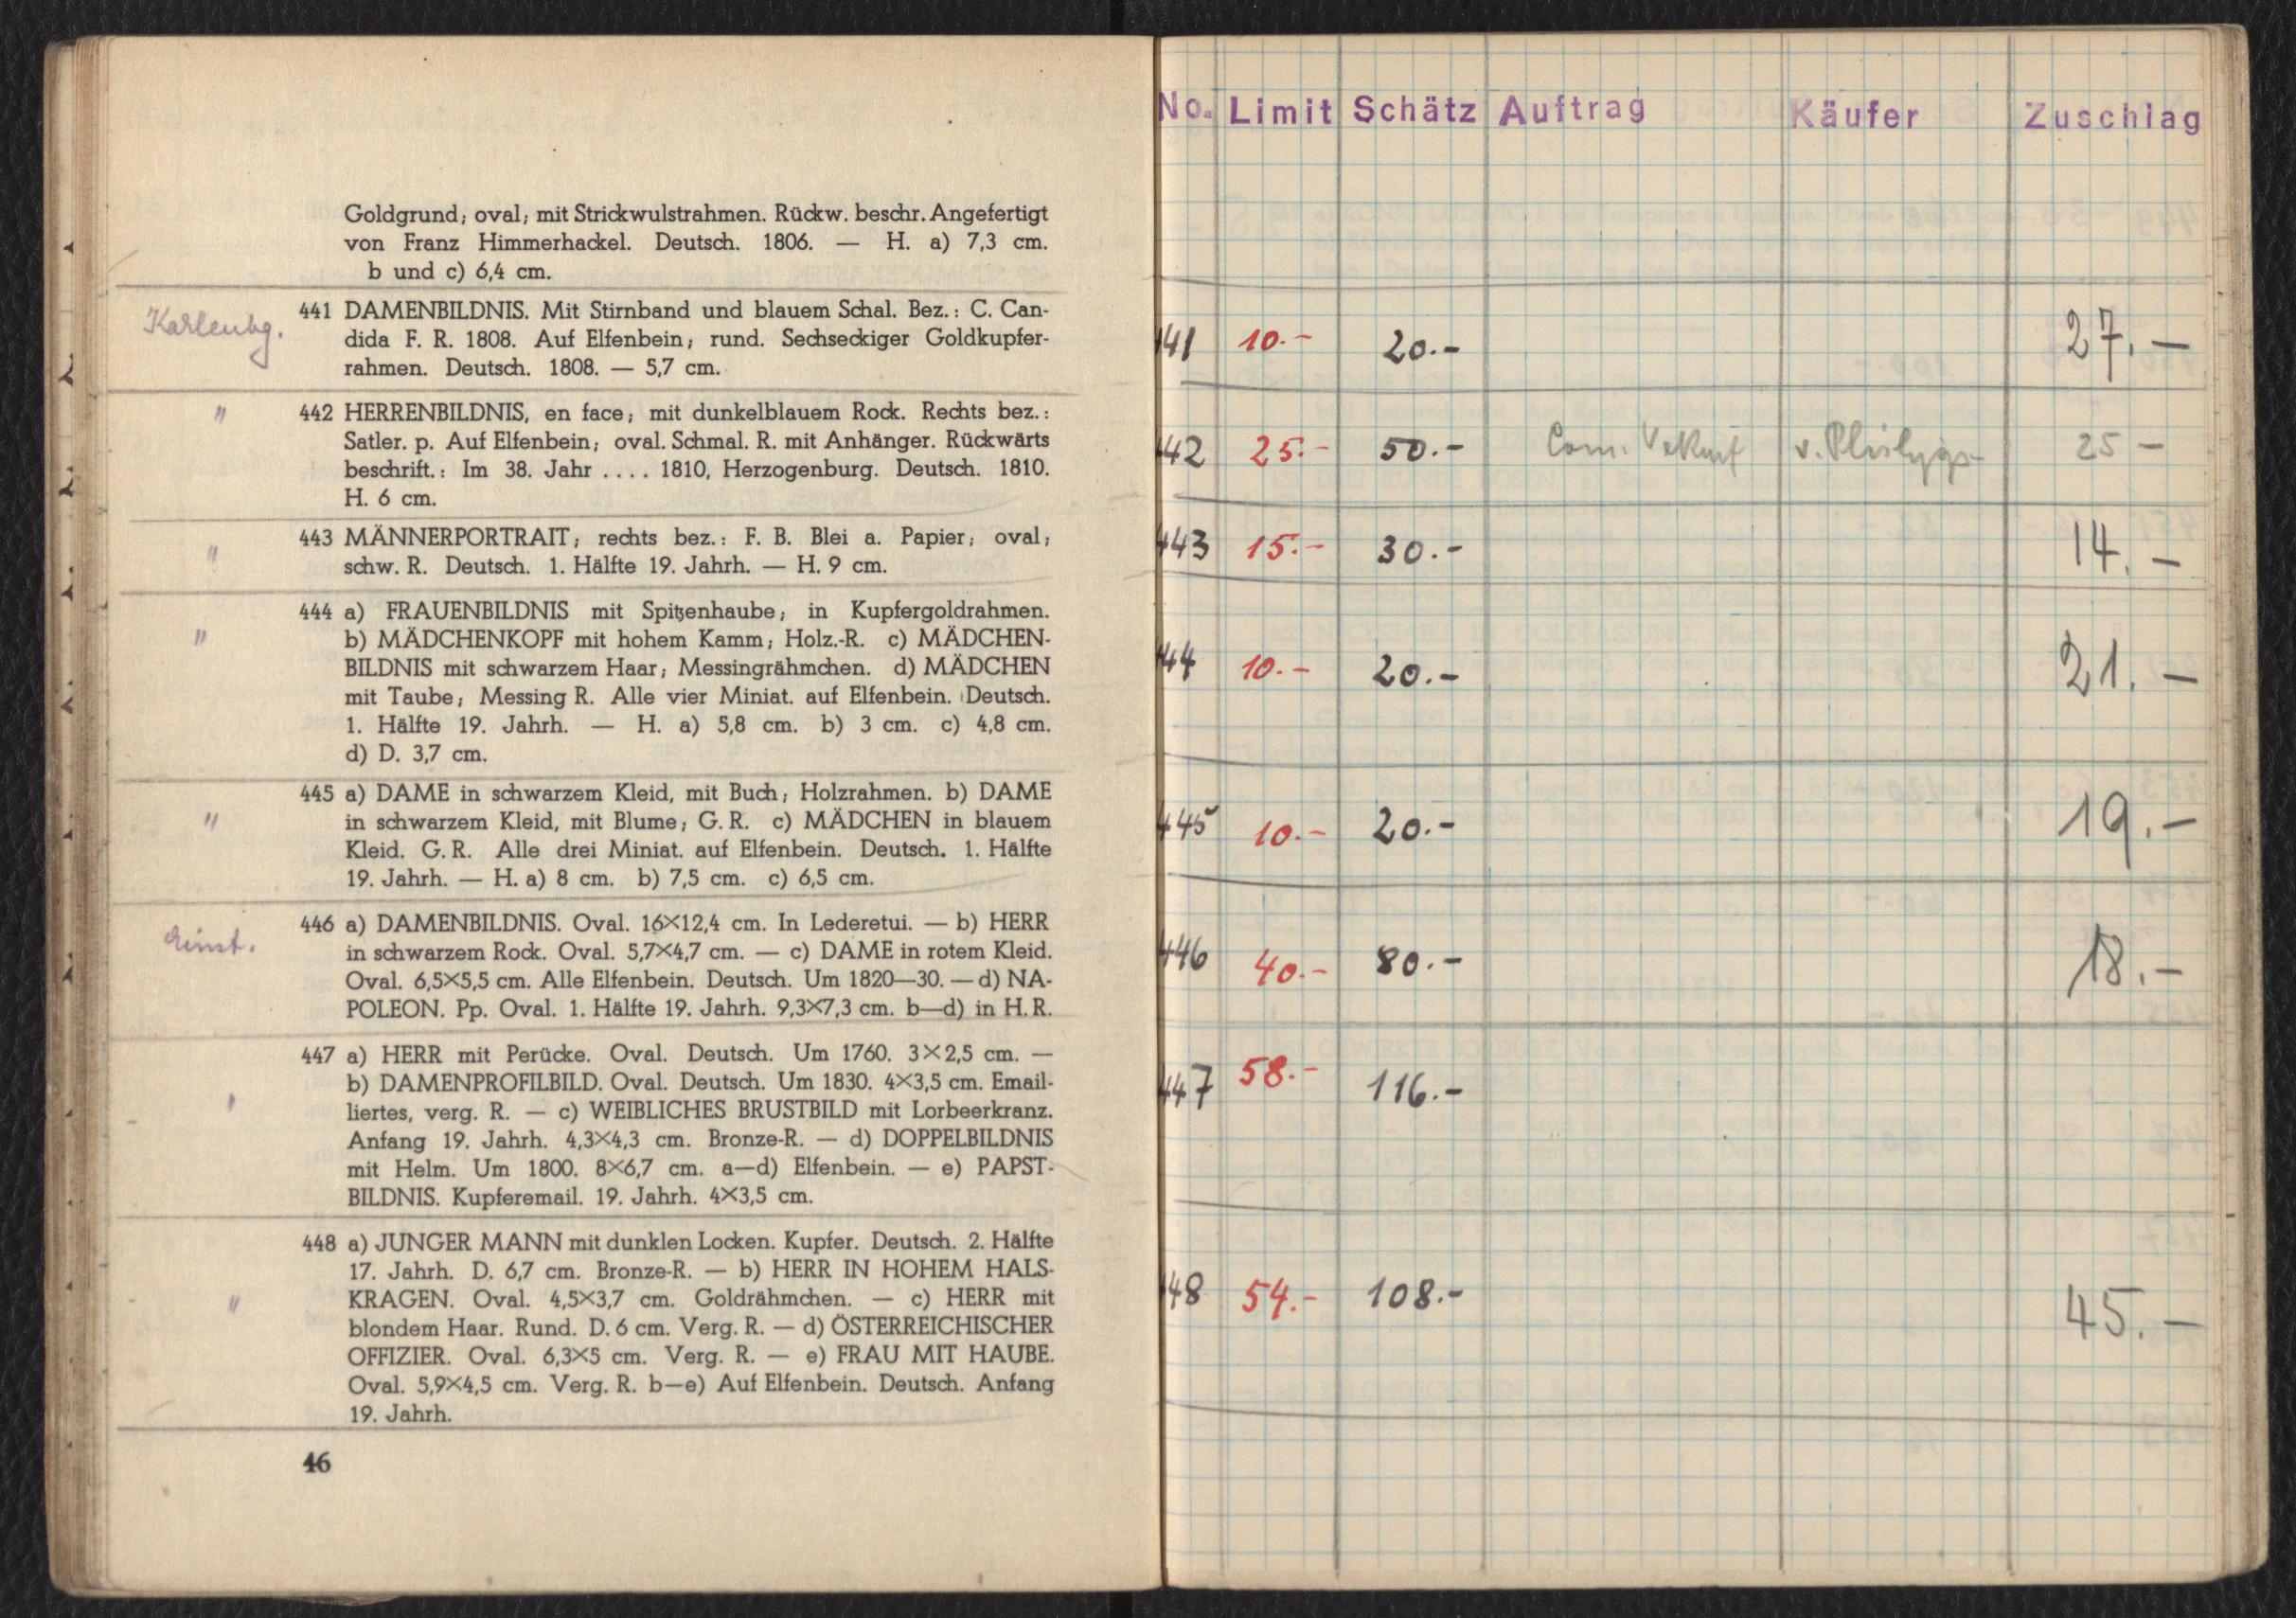 Goldgrund; oval; mit Strickwulstrahmen. Rückw. beschr. Angefertigt
von Franz Himmerhackel. Deutsch. 1806. — H. a) 7,3 cm.
b und c) 6,4 cm.
441 DAMENBILDNIS. Mit Stirnband und blauem Schal. Bez.: C. Can-
dida F. R. 1808. Auf Elfenbein; rund. Sechseckiger Goldkupfer-
rahmen. Deutsch. 1808. — 5,7 cm.
" 442 HERRENBILDNIS, en face; mit dunkelblauem Rock. Rechts bez.:
Satler. p. Auf Elfenbein; oval. Schmal. R. mit Anhänger. Rückwärts
beschrift.: Im 38. Jahr .... 1810, Herzogenburg. Deutsch. 1810.
H. 6 cm.
" 443 MÄNNERPORTRAIT; rechts bez.: F. B. Blei a. Papier; oval;
schw. R. Deutsch. 1. Hälfte 19. Jahrh. — H. 9 cm.
" 444 a) FRAUENBILDNIS mit Spitzenhaube; in Kupfergoldrahmen.
b) MÄDCHENKOPF mit hohem Kamm; Holz.-R. c) MÄDCHEN-
BILDNIS mit schwarzem Haar; Messingrähmchen. d) MÄDCHEN
mit Taube; Messing R. Alle vier Miniat. auf Elfenbein. Deutsch.
1. Hälfte 19. Jahrh. — H. a) 5,8 cm. b) 3 cm. c) 4,8 cm.
d) D. 3,7 cm.
" 445 a) DAME in schwarzem Kleid, mit Buch; Holzrahmen. b) DAME
in schwarzem Kleid, mit Blume; G. R. c) MÄDCHEN in blauem
Kleid. G. R. Alle drei Miniat. auf Elfenbein. Deutsch. 1. Hälfte
19. Jahrh. — H. a) 8 cm. b) 7,5 cm. c) 6,5 cm.
446 a) DAMENBILDNIS. Oval. 16×12,4 cm. In Lederetui. — b) HERR
in schwarzem Rock. Oval. 5,7×4,7 cm. — c) DAME in rotem Kleid.
Oval. 6,5×5,5 cm. Alle Elfenbein. Deutsch. Um 1820—30. — d) NA-
POLEON. Pp. Oval. 1. Hälfte 19. Jahrh. 9,3×7,3 cm. b—d) in H. R.
447 a) HERR mit Perücke. Oval. Deutsch. Um 1760. 3×2,5 cm. —
b) DAMENPROFILBILD. Oval. Deutsch. Um 1830. 4×3,5 cm. Email-
liertes, verg. R. — c) WEIBLICHES BRUSTBILD mit Lorbeerkranz.
Anfang 19. Jahrh. 4,3×4,3 cm. Bronze-R. — d) DOPPELBILDNIS
mit Helm. Um 1800. 8×6,7 cm. a—d) Elfenbein. — e) PAPST-
BILDNIS. Kupferemail. 19. Jahrh. 4×3,5 cm.
" 448 a) JUNGER MANN mit dunklen Locken. Kupfer. Deutsch. 2. Hälfte
17. Jahrh. D. 6,7 cm. Bronze-R. — b) HERR IN HOHEM HALS-
KRAGEN. Oval. 4,5×3,7 cm. Goldrähmchen. — c) HERR mit
blondem Haar. Rund. D. 6 cm. Verg. R. — d) ÖSTERREICHISCHER
OFFIZIER. Oval. 6,3×5 cm. Verg. R. — e) FRAU MIT HAUBE.
Oval. 5,9×4,5 cm. Verg. R. b—e) Auf Elfenbein. Deutsch. Anfang
19. Jahrh.
46
No. Limit Schätz Auftrag Käufer Zuschlag
441 10.- 20.- 27.-
442 25.- 50.- 25 -
443 15.- 30.- 14.-
444 10.- 20.- 21.-
445 10.- 20.- 19.-
446 40.- 80.- 18.-
447 58.- 116.-
448 54.- 108.- 45.-